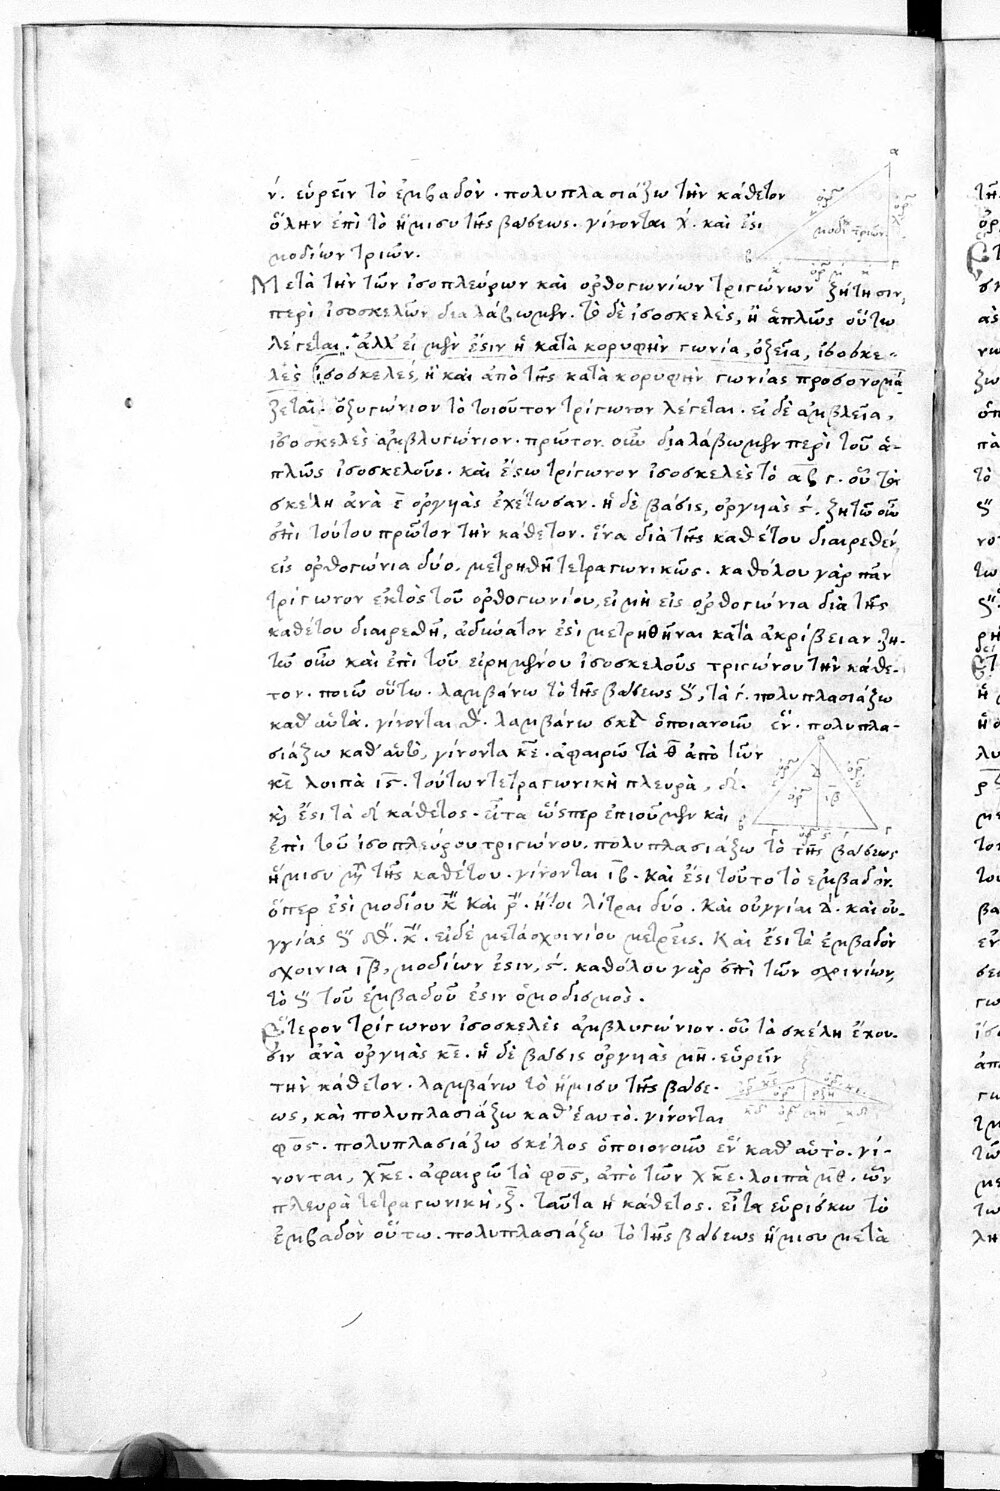 ν´. εὑρεῖν τὸ ἐμβαδὸν · πολυπλασιάζω τὴν κάθετον
ὅλην ἐπὶ τὸ ἥμισυ τῆς βάσεως. γίνονται χ´. καὶ ἔστι
μοδίων τριῶν.
Μετὰ τὴν τῶν ἰσοπλεύρων καὶ ὀρθογωνίων τριγώνων ζήτησιν,
περὶ ἰσοσκελῶν διαλάβωμεν. τὸ δὲ ἰσοσκελὲς, ἢ ἁπλῶς οὕτω
λέγεται. ἀλλ' εἰ μὲν ἔστιν ἡ κατὰ κορυφὴν γωνία, ὀξεῖα, ἰσοσκε-
λὲς ἰσοσκελες, ἢ καὶ ἀπὸ τῆς κατὰ κορυφὴν γωνίας προσονομά
ζεται. ὀξυγώνιον τὸ τοιοῦτον τρίγωνον λέγεται. εἰ δὲ ἀμβλεῖα,
ἰσοσκελὲς ἀμβλυγώνιον. πρῶτον οὖν διαλάβωμεν περὶ τοῦ ἁ-
πλῶς ἰσοσκελοῦς. καὶ ἔστω τρίγωνον ἰσοσκελὲς τὸ αβγ. οὗ τὰ
σκέλη ἀνὰ ε̅ ὀργυιὰς ἐχέτωσαν. ἡ δὲ βάσις, ὀργυιὰς ς´. ζητῶ οὖν
ἐπὶ τούτου πρῶτον τὴν κάθετον. ἵνα διὰ τῆς καθέτου διαιρεθὲν
εἰς ὀρθογώνια δύο, μετρηθῇ τετραγωνικῶς. καθόλου γὰρ πᾶν
τρίγωνον ἐκτὸς τοῦ ὀρθογωνίου, εἰ μὴ εἰς ὀρθογώνια διὰ τῆς
καθέτου διαιρεθῇ, ἀδύνατον ἐστὶ μετρηθῆναι κατὰ ἀκρίβειαν. ζη-
τῶ οὖν καὶ ἐπὶ τοῦ εἰρημένου ἰσοσκελοῦς τριγώνου τὴν κάθε-
τον. ποιῶ οὕτω. λαμβάνω τὸ τῆς βάσεως 𐅵, τὰ γ´. πολυπλασιάζω
καθ' αὑτὰ. γίνονται θ´. λαμβάνω σκέλος ὁποιανοῦν ἕν. πολυπλα-
σιάζω καθ' αὑτὸ, γίνονται κ̅ε̅. ἀφαιρῶ τὰ θ̅ ἀπὸ τῶν
κ̅ε̅ λοιπὰ ι̅ς̅. τούτων τετραγωνικὴ πλευρὰ, δ´.
καὶ ἔστι τὰ δ´ κάθετος. εἶτα ὥσπερ ἐποιοῦμεν καὶ
ἐπὶ τοῦ ἰσοπλεύρου τριγώνου. πολυπλασιάζω τὸ τῆς βάσεως
ἥμισυ μετὰ τῆς καθέτου. γίνονται ι̅β̅. καὶ ἔστι τοῦτο τὸ ἐμβαδόν.
ὅπερ ἐστὶ μοδίου κ´´ καὶ ρ´´. ἤτοι λίτραι δύο. καὶ οὐγγίαι δ´. καὶ οὐ-
γγίας εἰ δὲ μετὰ σχοινίου μετρεῖς. καὶ ἔστι τὸ ἐμβαδὸν
σχοινία ι̅β̅, μοδίων ἐστιν, ς´. καθόλου γὰρ ἐπὶ τῶν σχοινίων,
τὸ 𐅵 τοῦ ἐμβαδοῦ ἐστιν ὁ μοδισμὸς.
Ἕτερον τρίγωνον ἰσοσκελὲς ἀμβλυγώνιον. οὗ τὰ σκέλη ἔχου-
σιν ἀνὰ ὀργυιὰς κ̅ε̅. ἡ δὲ βάσις ὀργυιὰς μ̅η̅. εὑρεῖν
τὴν κάθετον. λαμβάνω τὸ ἥμισυ τῆς βάσε-
ως, καὶ πολυπλασιάζω καθ' ἑαυτὸ. γίνονται
φ̅ο̅ς̅. πολυπλασιάζω σκέλος ὁποιονοῦν ἓν καθ' αὑτὸ. γί-
νονται, χ̅κ̅ε̅. ἀφαιρῶ τὰ φ̅ο̅ς̅, ἀπὸ τῶν χ̅κ̅ε̅. λοιπὰ μ̅θ̅. ὧν
πλευρὰ τετραγωνικὴ, ζ̅. ταῦτα ἡ κάθετος. εἶτα εὑρίσκω τὸ
ἐμβαδὸν οὕτω. πολυπλασιάζω τὸ τῆς βάσεως ἥμισυ μετὰ